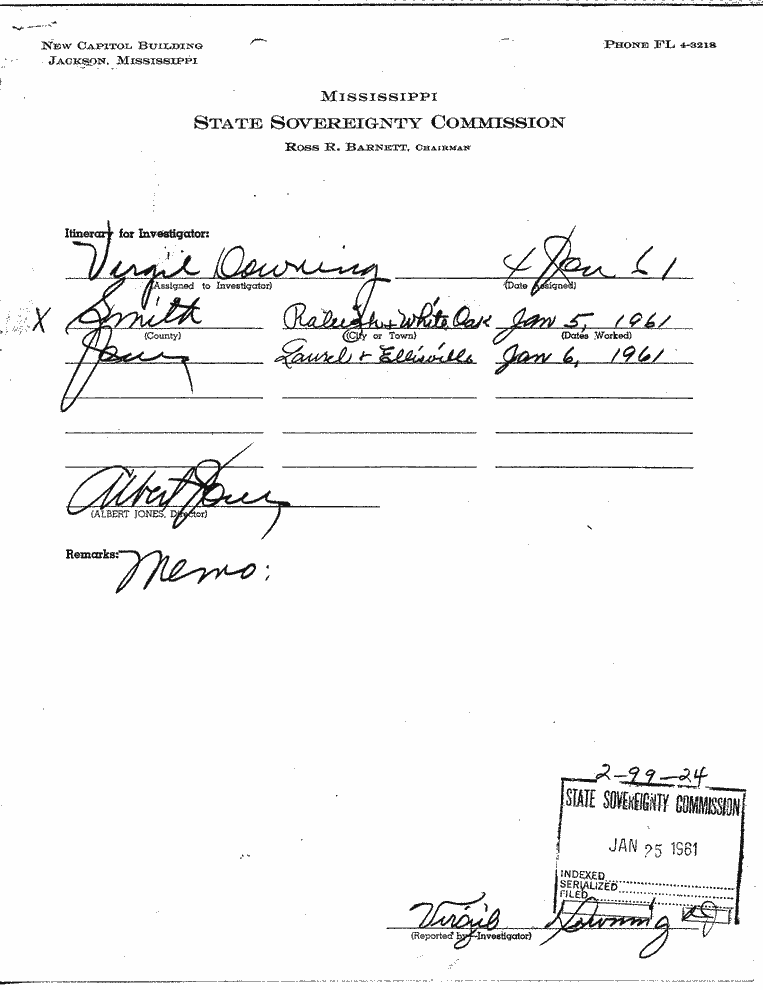 NEW CAPITOL BUILDING
JACKSON, MISSISSIPPI
PHONE FL 4-3218
MISSISSIPPI
STATE SOVEREIGNTY COMMISSION
ROSS R. BARNETT, CHAIRMAN
Itinerary for Investigator:
Virgil Downing 4 Jan 61
(Assigned to Investigator) (Date Assigned)
X Smith Raleigh + White Oak Jan 5, 1961
(County) (City or Town) (Dates Worked)
Jones Laurel + Ellisville Jan 6, 1961
Albert Jones
(ALBERT JONES, Director)
Remarks: Memo:
2-99-24
STATE SOVEREIGNTY COMMISSION
JAN 25 1961
INDEXED
SERIALIZED
FILED
Virgil Downing
(Reported by Investigator)